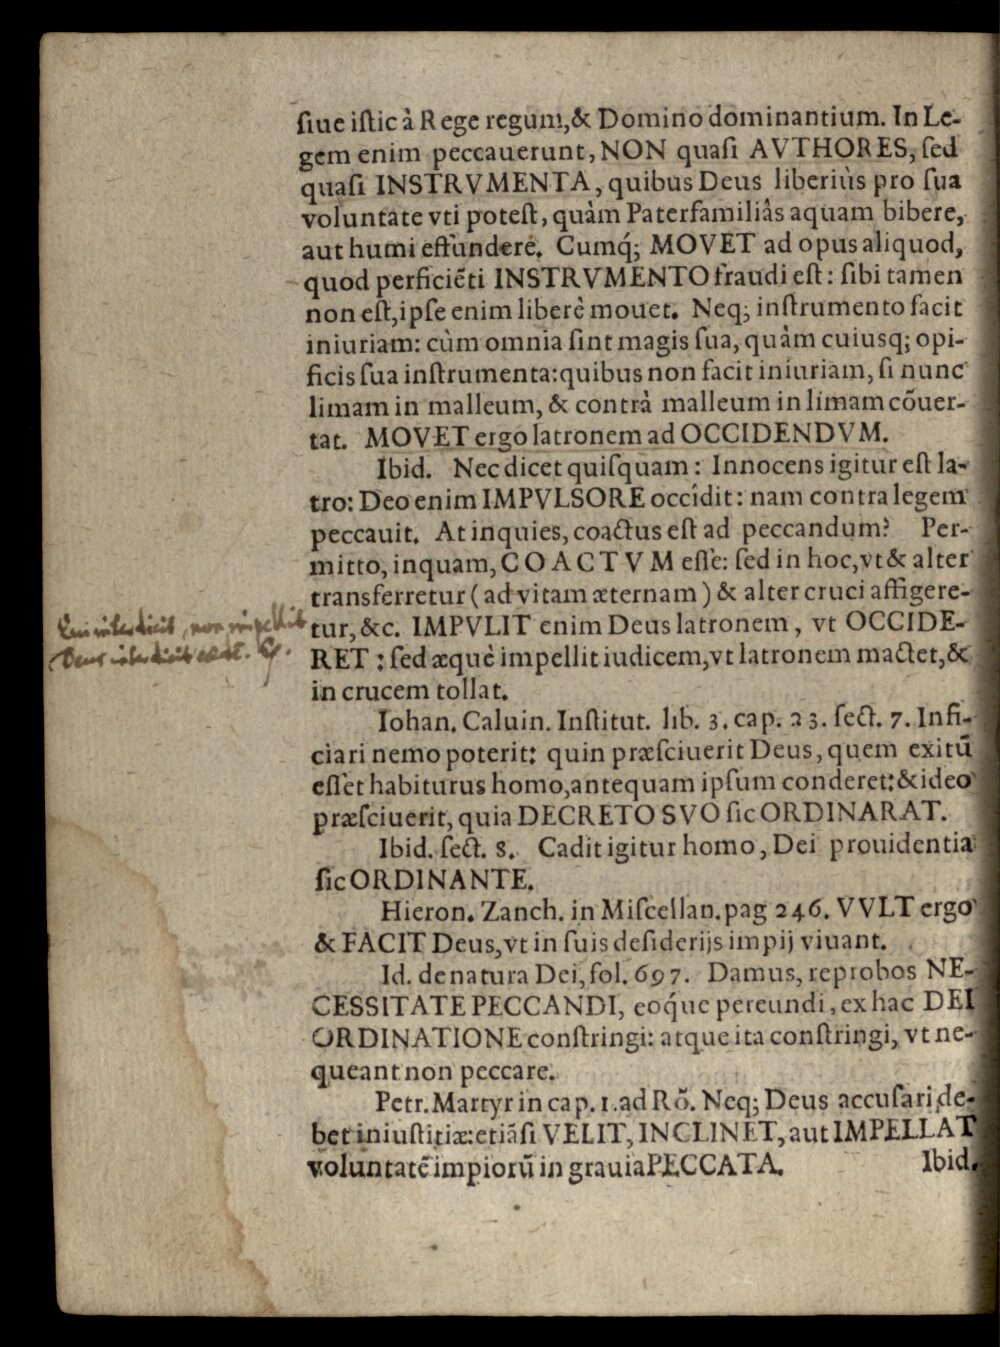 ſiue iſtic à Rege regum,& Domino dominantium. In Le-
gem enim peccauerunt, NON quaſi AVTHORES, ſed
quaſi INSTRVMENTA, quibus Deus liberiùs pro ſua
voluntate vti poteſt, quàm Paterfamiliâs aquam bibere,
aut humi effundere. Cumq́; MOVET ad opus aliquod,
quod perficiẽti INSTRVMENTO fraudi eſt: ſibi tamen
non eſt, ipſe enim liberè mouet. Neq; inſtrumento facit
iniuriam: cùm omnia ſint magis ſua, quàm cuiusq; opi-
ficis ſua inſtrumenta: quibus non facit iniuriam, ſi nunc
limam in malleum, & contrà malleum in limam cõuer-
tat. MOVET ergo latronem ad OCCIDENDVM.
Ibid. Nec dicet quiſquam: Innocens igitur eſt la-
tro: Deo enim IMPVLSORE occîdit: nam contra legem
peccauit. At inquies, coactus eſt ad peccandum? Per-
mitto, inquam, COACTVM eſſe: ſed in hoc, vt & alter
transferretur (ad vitam æternam) & alter cruci affigere-
tur, &c. IMPVLIT enim Deus latronem, vt OCCIDE-
RET: ſed æquè impellit iudicem, vt latronem mactet, &
in crucem tollat.
Qui interdicit, non impellit
Deus interdicit
Iohan. Caluin. Inſtitut. lib. 3. cap. 23. ſect. 7. Infi-
ciari nemo poterit: quin præſciuerit Deus, quem exitũ
eſſet habiturus homo, antequam ipſum conderet: & ideo
præſciuerit, quia DECRETO SVO ſic ORDINARAT.
Ibid. ſect. 8. Cadit igitur homo, Dei prouidentia
ſic ORDINANTE.
Hieron. Zanch. in Miſcellan. pag 246. VVLT ergo
& FACIT Deus, vt in ſuis deſiderijs impij viuant.
Id. de natura Dei, fol. 697. Damus, reprobos NE-
CESSITATE PECCANDI, eoq́ue pereundi, ex hac DEI
ORDINATIONE conſtringi: atque ita conſtringi, vt ne-
queant non peccare.
Petr. Martyr in cap. 1. ad Rõ. Neq; Deus accuſari de-
bet iniuſtitiæ: etiãſi VELIT, INCLINET, aut IMPELLAT
voluntatẽ impiorũ in grauia PECCATA.
Ibid.